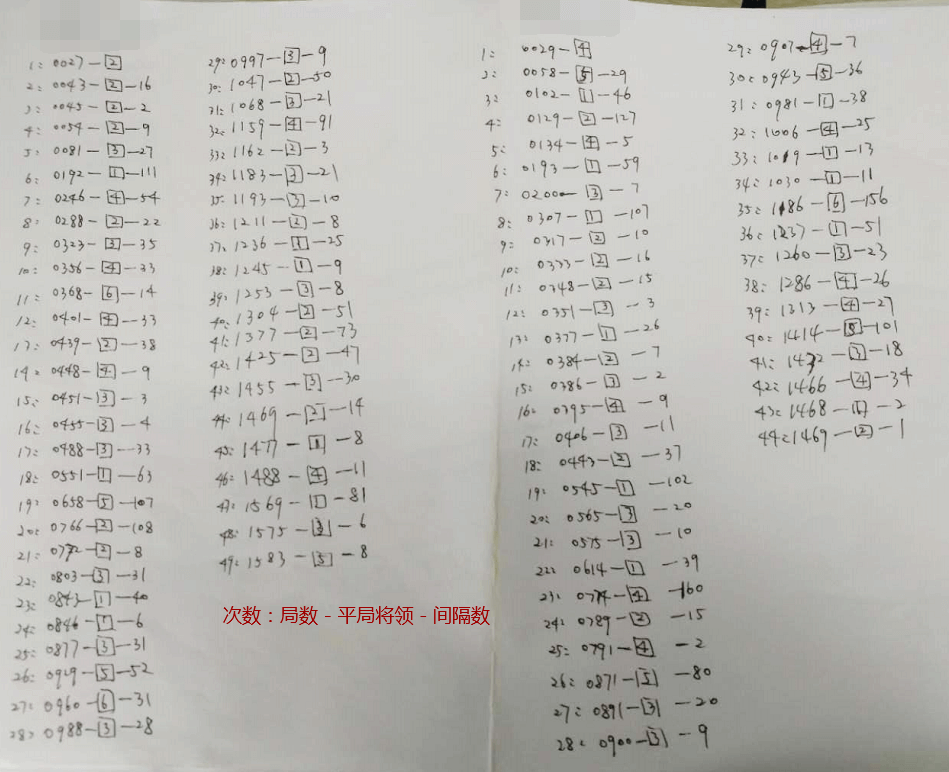 1: 0027-2
2: 0043-2-16
3: 0045-2-2
4: 0054-2-9
5: 0081-3-27
6: 0192-1-111
7: 0246-4-54
8: 0288-2-22
9: 0323-3-35
10: 0356-4-33
11: 0368-6-14
12: 0401-4-33
13: 0439-2-38
14: 0448-4-9
15: 0451-3-3
16: 0455-3-4
17: 0488-3-33
18: 0551-1-63
19: 0658-5-107
20: 0766-2-108
21: 0772-2-8
22: 0803-3-31
23: 0843-1-40
24: 0846-1-6
25: 0877-3-31
26: 0929-5-52
27: 0960-6-31
28: 0988-3-28
29: 0997-3-9
30: 1047-2-50
31: 1068-3-21
32: 1159-4-91
33: 1162-2-3
34: 1183-3-21
35: 1193-3-10
36: 1211-2-8
37: 1236-1-25
38: 1245-1-9
39: 1253-3-8
40: 1304-2-51
41: 1377-2-73
42: 1425-2-47
43: 1455-3-30
44: 1469-2-14
45: 1477-1-8
46: 1488-4-11
47: 1569-1-81
48: 1575-3-6
49: 1583-5-8
次数：局数－平局将领－间隔数
1: 0029-4
2: 0058-5-29
3: 0102-1-46
4: 0129-2-127
5: 0134-4-5
6: 0193-1-59
7: 0200-3-7
8: 0307-1-107
9: 0317-2-10
10: 0333-2-16
11: 0348-2-15
12: 0351-3-3
13: 0377-1-26
14: 0384-2-7
15: 0386-3-2
16: 0395-4-9
17: 0406-3-11
18: 0443-2-37
19: 0545-1-102
20: 0565-3-20
21: 0575-3-10
22: 0614-1-39
23: 0774-4-160
24: 0789-2-15
25: 0791-4-2
26: 0871-5-80
27: 0891-3-20
28: 0900-3-9
29: 0907-4-7
30: 0943-5-36
31: 0981-1-38
32: 1006-4-25
33: 1019-1-13
34: 1030-1-11
35: 1186-6-156
36: 1237-1-51
37: 1260-3-23
38: 1286-4-26
39: 1313-4-27
40: 1414-5-101
41: 1432-3-18
42: 1466-4-34
43: 1468-1-2
44: 1469-2-1